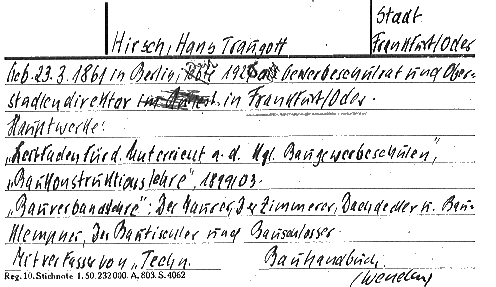 Stadt
Hirsch, Hans Traugott Frankfurt/Oder
Geb. 23.3.1861 in Berlin, Gewerbeschulrat und Ober-
studiendirektor in Frankfurt/Oder.
Hauptwerke:
„Leitfaden für d. Unterricht a. d. Kgl. Baugewerbeschulen",
„Baukonstruktionslehre", 1899/03.
„Bauverbandlehre": Der Maurer, Der Zimmerer, Dachdecker u. Bau-
klempner, Der Bautischler und Bauschlosser.
Mitverfasser von „Techn. Bauhandbuch
Reg. 10. Stichnote 1. 50. 232000. A. 803. S. 4062